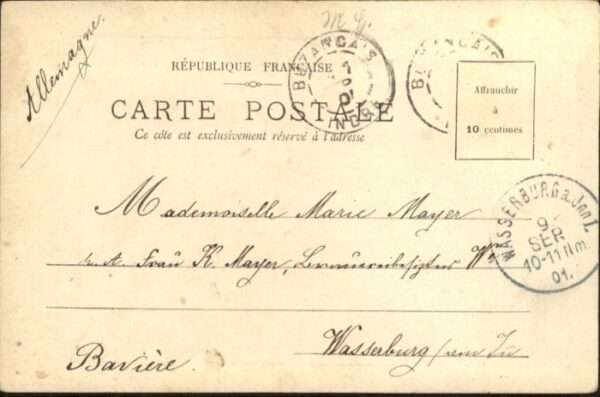 Allemagne.
M. G.
RÉPUBLIQUE FRANÇAISE
CARTE POSTALE
Ce côté est exclusivement réservé à l'adresse
BUZANCAIS
INDRE
BUZANCAIS
Affranchir
à
10 centimes
Mademoiselle Marie Mayer
Frau K. Mayer,
WASSERBURG a. Inn I.
9
SEP.
10-11 Nm.
01.
Wasserburg
Bavière.